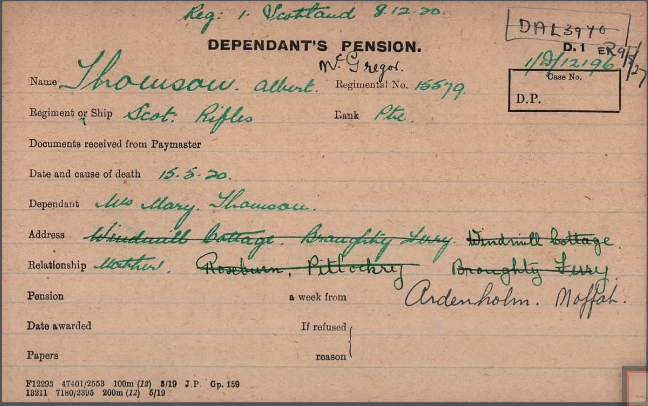 Reg: 1. Scotland 8.12.20.
DAL3970
DEPENDANT'S PENSION.
D.1
ER 9/5/27
1/D/12196
Name Thomson Albert McGregor. Regimental No. 15579.
Case No.
D.P.
Regiment or Ship Scot. Rifles Rank Pte.
Documents received from Paymaster
Date and cause of death 15.5.20.
Dependant Mrs Mary. Thomson.
Address Windmill Cottage. Broughty Ferry. Windmill Cottage.
Relationship Mother. Roseburn. Pitlochry Broughty Ferry
Pension a week from Ardenholm. Moffat.
Date awarded If refused
Papers reason
F12293 47401/2553 100m (12) 3/19 J.P. Gp. 159
13211 7180/2395 200m (12) 5/19